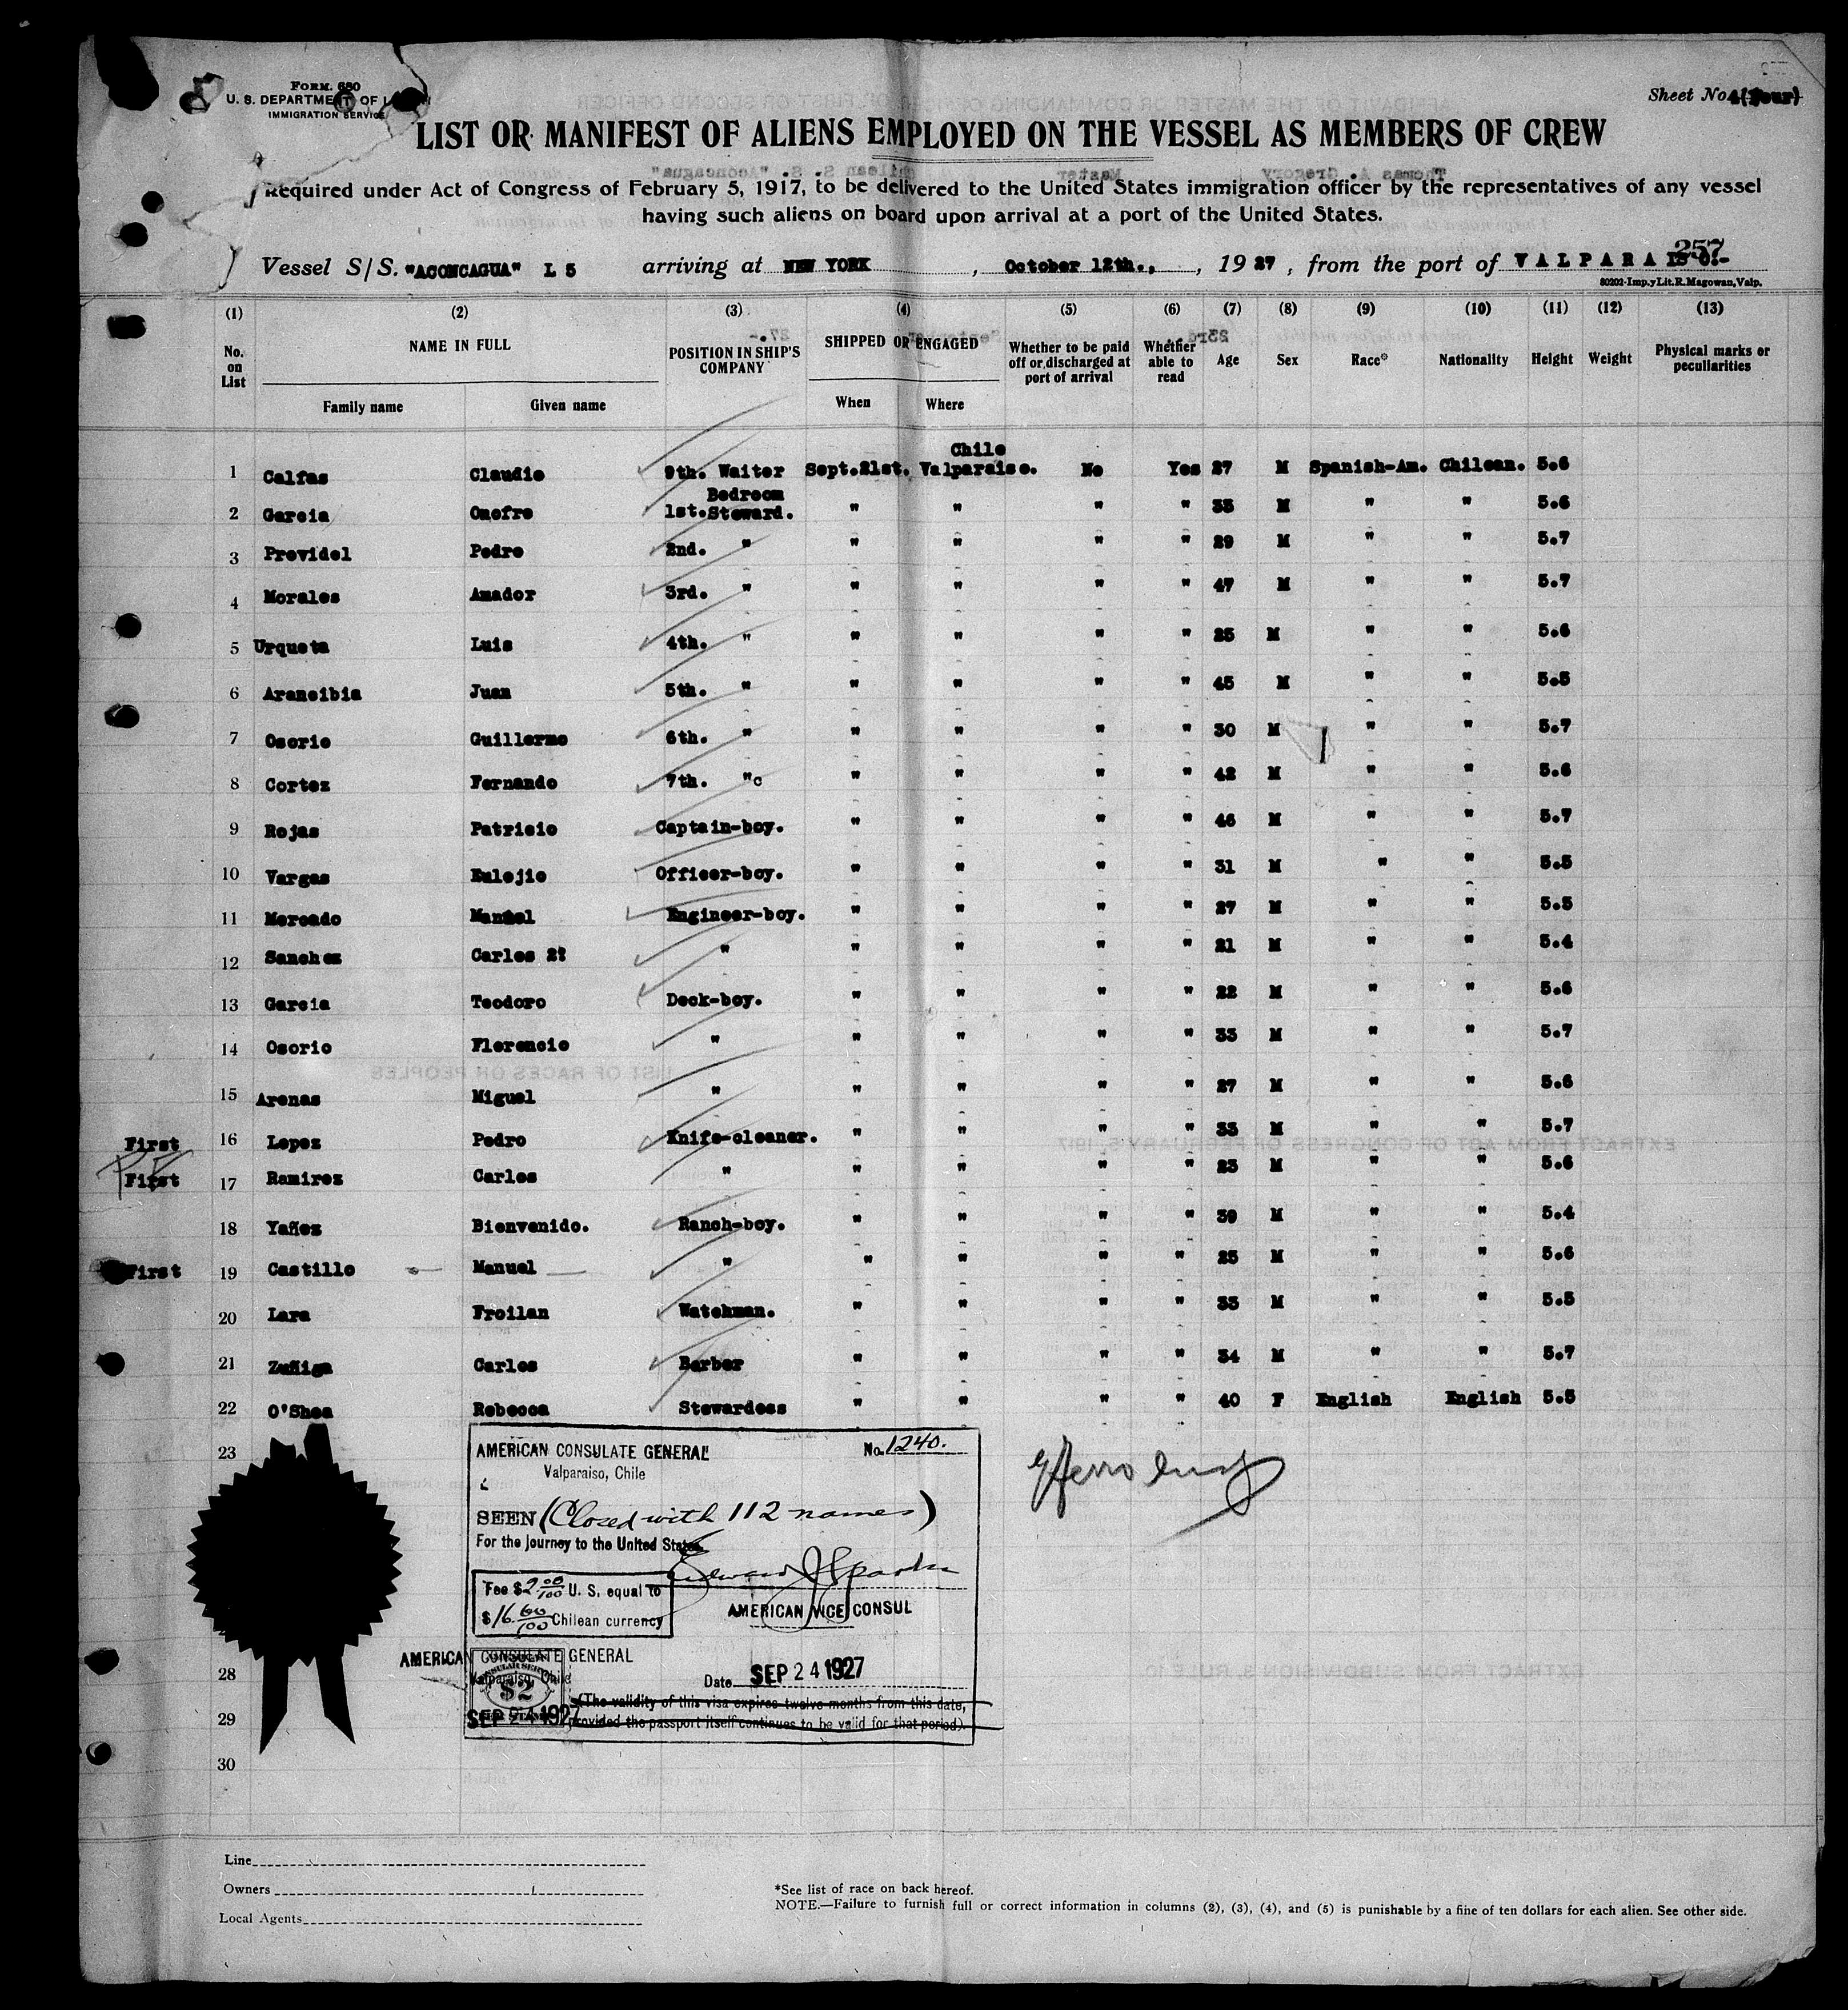 FORM. 680
U. S. DEPARTMENT OF
IMMIGRATION SERVICE
Sheet No. 4(Four)
LIST OR MANIFEST OF ALIENS EMPLOYED ON THE VESSEL AS MEMBERS OF CREW
Required under Act of Congress of February 5, 1917, to be delivered to the United States immigration officer by the representatives of any vessel
having such aliens on board upon arrival at a port of the United States.
257
Vessel S/S. "ACONCAGUA" L 5 arriving at NEW YORK, October 12th., , 19 27, from the port of VALPARAISO.-
80202-Imp.yLit.R.Magowan,Valp.
(1) (2) (3) (4) (5) (6) (7) (8) (9) (10) (11) (12) (13)
No. on List NAME IN FULL POSITION IN SHIP'S COMPANY SHIPPED OR ENGAGED Whether to be paid off or discharged at port of arrival Whether able to read Age Sex Race* Nationality Height Weight Physical marks or peculiarities
Family name Given name When Where
1 Calfas Claudio 9th. Waiter Sept.21st. Chile Valparaiso. No Yes 27 M Spanish-Am. Chilean. 5.6
2 Garcia Onofre 1st. Bedroom Steward. " " " " 33 M " " 5.6
3 Previdel Pedro 2nd. " " " " " 29 M " " 5.7
4 Morales Amador 3rd. " " " " " 47 M " " 5.7
5 Urqueta Luis 4th. " " " " " 25 M " " 5.6
6 Arancibia Juan 5th. " " " " " 45 M " " 5.5
7 Osorio Guillermo 6th. " " " " " 30 M " " 5.7
8 Cortez Fernando 7th. "c " " " " 42 M " " 5.6
9 Rojas Patricio Captain-boy. " " " " 46 M " " 5.7
10 Vargas Eulojio Officer-boy. " " " " 31 M " " 5.5
11 Mercado Manuel Engineer-boy. " " " " 27 M " " 5.5
12 Sanchez Carlos 2? " " " " " 21 M " " 5.4
13 Garcia Teodoro Deck-boy. " " " " 22 M " " 5.6
14 Osorio Florencio " " " " " 33 M " " 5.7
15 Arenas Miguel " " " " " 27 M " " 5.6
First 16 Lopez Pedro Knife-cleaner. " " " " 33 M " " 5.7
First 17 Ramirez Carlos " " " " " 23 M " " 5.6
18 Yañez Bienvenido. Ranch-boy. " " " " 39 M " " 5.4
First 19 Castillo Manuel " " " " " 25 M " " 5.6
20 Lara Froilan Watchman. " " " " 33 M " " 5.5
21 Zuñiga Carlos Barber " " " " 34 M " " 5.7
22 O'Shea Rebecca Stewardess " " " " 40 F English English 5.5
23
AMERICAN CONSULATE GENERAL No. 1240.
Valparaiso, Chile
SEEN (Closed with 112 names)
For the journey to the United States.
Fee $2 00/100 U. S. equal to
$16 60/100 Chilean currency
AMERICAN VICE CONSUL
AMERICAN CONSULATE GENERAL
Valparaiso, Chile
28
Date SEP 24 1927
$2
(The validity of this visa expires twelve months from this date,
provided the passport itself continues to be valid for that period).
SEP 24 1927
29
30
Line
Owners
Local Agents
*See list of race on back hereof.
NOTE.—Failure to furnish full or correct information in columns (2), (3), (4), and (5) is punishable by a fine of ten dollars for each alien. See other side.